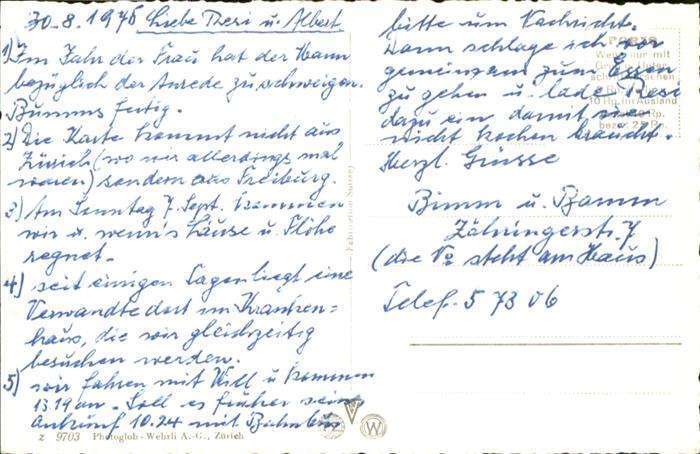 30.8.1975 Liebe Resi u. Albert
1) Im Jahr der Frau hat der Mann
bezüglich der Anrede zu schweigen.
Bumms fertig.
2) Die Karte kommt nicht aus
Zürich (wo wir allerdings mal
waren) sondern aus Freiburg.
3) Am Sonntag 7. Sept. kommen
wir u. wenn's Läuse u. Flöhe
regnet.
4) seit einigen Tagen liegt eine
Verwandte dort im Kranken=
haus, die wir gleichzeitig
besuchen werden.
5) wir fahren mit Will u. kommen
13.19 an. Soll es früher sein
Ankunft 10.24 mit Bahnbus
z 9703 Photoglob-Wehrli A.-G., Zürich
bitte um Nachricht.
Dann schlage ich vor
gemeinsam zum Essen
zu gehen u. lade Resi
dazu ein damit sie
nicht kochen braucht.
Herzl. Grüsse
Bimm u. Bamm
Zähringerstr. 7
(die No steht am Haus)
Telef. 5 73 06
W